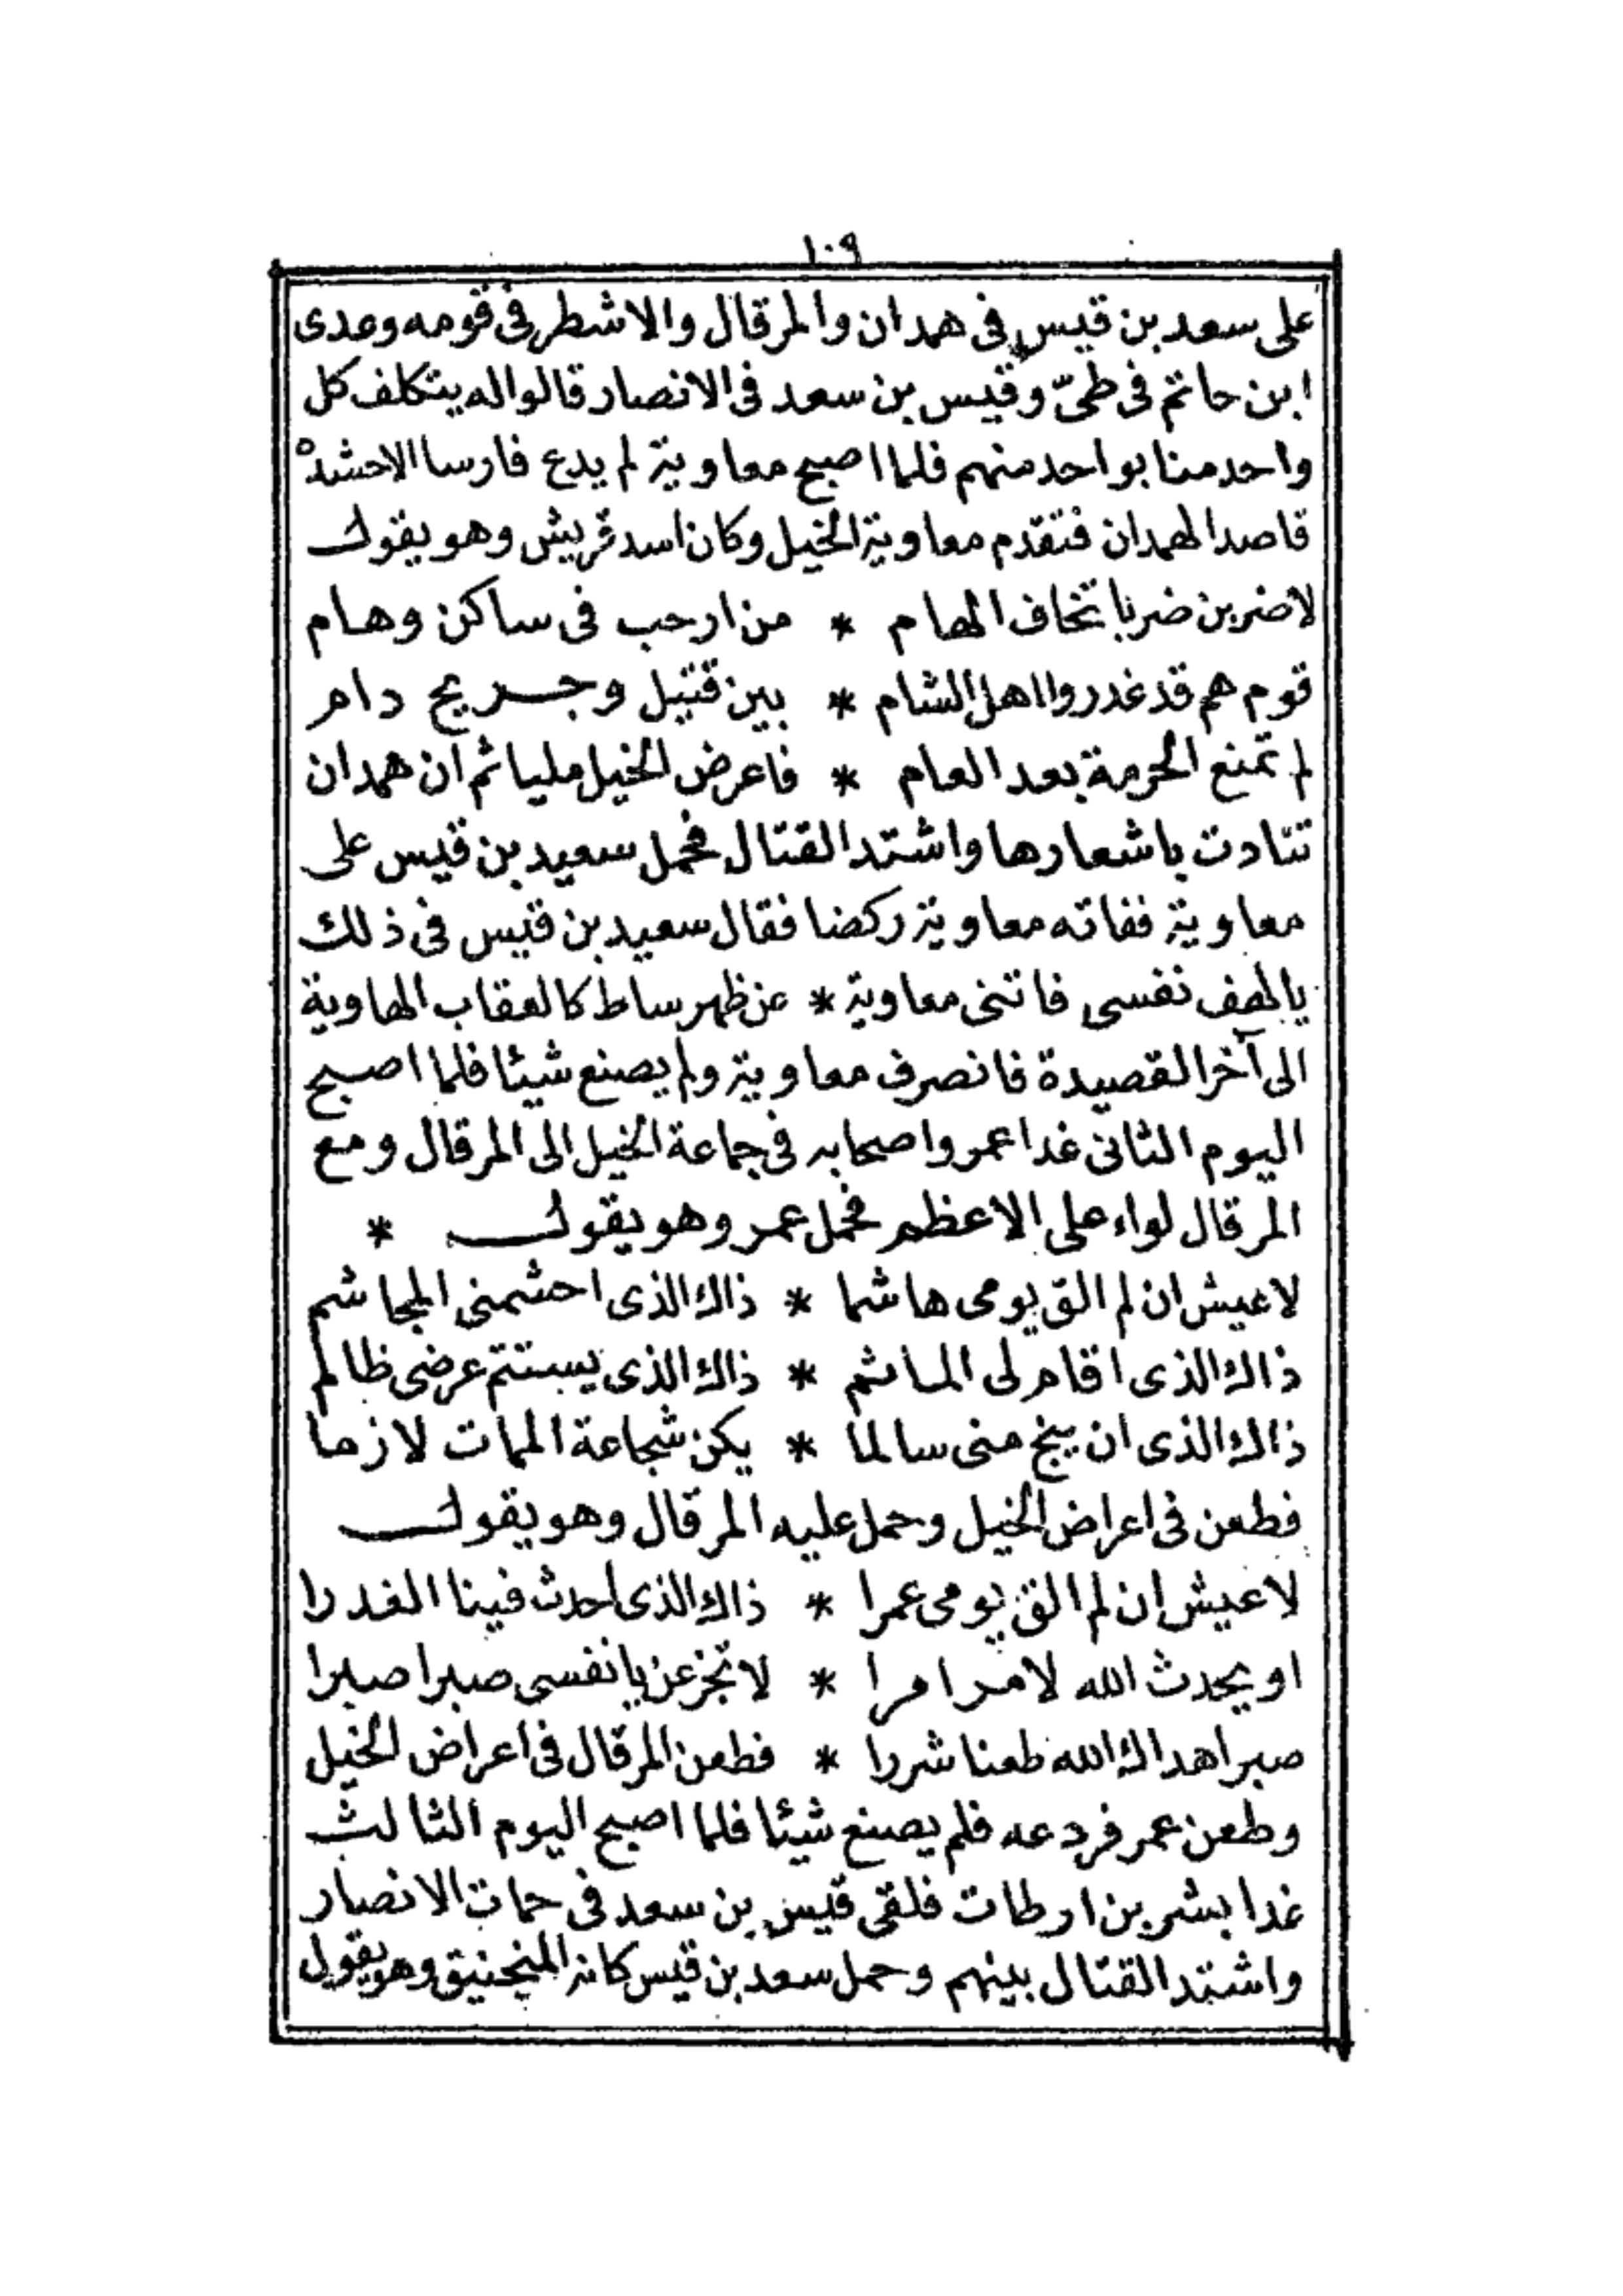 ١٠٩
على سعد بن قيس فى همدان والمرقال والاشطر فى قومه وعدى
ابن حاتم فى طىّ وقيس بن سعد فى الانصار قالوا اله يتكلف كل
واحد منا بواحد منهم فلما اصبح معاوية لم يدع فارسا الاحشده
قاصدا لهمدان فتقدم معاوية الخيل وكان اسد قريش وهو يقول
لاضربن ضربا تخاف الهام * من ارحب فى ساكن وهام
قوم هم قد غدروا اهل الشام * بين قتيل وجريح دام
لم تمنع الحرمة بعد العام * فاعرض الخيل مليا ثم ان همدان
تنادت باشعارها واشتد القتال فحمل سعيد بن قيس على
معاوية ففاته معاوية ركضا فقال سعيد بن قيس فى ذلك
يالهف نفسى فاتنى معاوية * عن ظهر ساط كالعقاب الهاوية
الى آخر القصيدة فانصرف معاوية ولم يصنع شيئا فلما اصبح
اليوم الثانى غدا عمرو اصحابه فى جماعة الخيل الى المرقال ومع
المرقال لواء على الاعظم فحمل عمر وهو يقول *
لاعيش ان لم الق يومى هاشما * ذاك الذى احشمنى المجاشم
ذاك الذى اقام لى الماثم * ذاك الذى يستتم عرضى ظالم
ذاك الذى ان ينج منى سالما * يكن شجاعة الممات لازما
فطعن فى اعراض الخيل وحمل عليه المرقال وهو يقول
لاعيش ان لم الق يومى عمرا * ذاك الذى احدث فينا الغدرا
او يحدث الله لامر امرا * لا تجزعن يا نفسى صبرا صبرا
صبرا هداك الله طعنا شررا * فطعن المرقال فى اعراض الخيل
وطعن عمر فردعه فلم يصنع شيئا فلما اصبح اليوم الثالث
غدا بشر بن ارطات فلقى قيس بن سعد فى حمات الانصار
واشتد القتال بينهم وحمل سعد بن قيس كانه المنجنيق وهو يقول